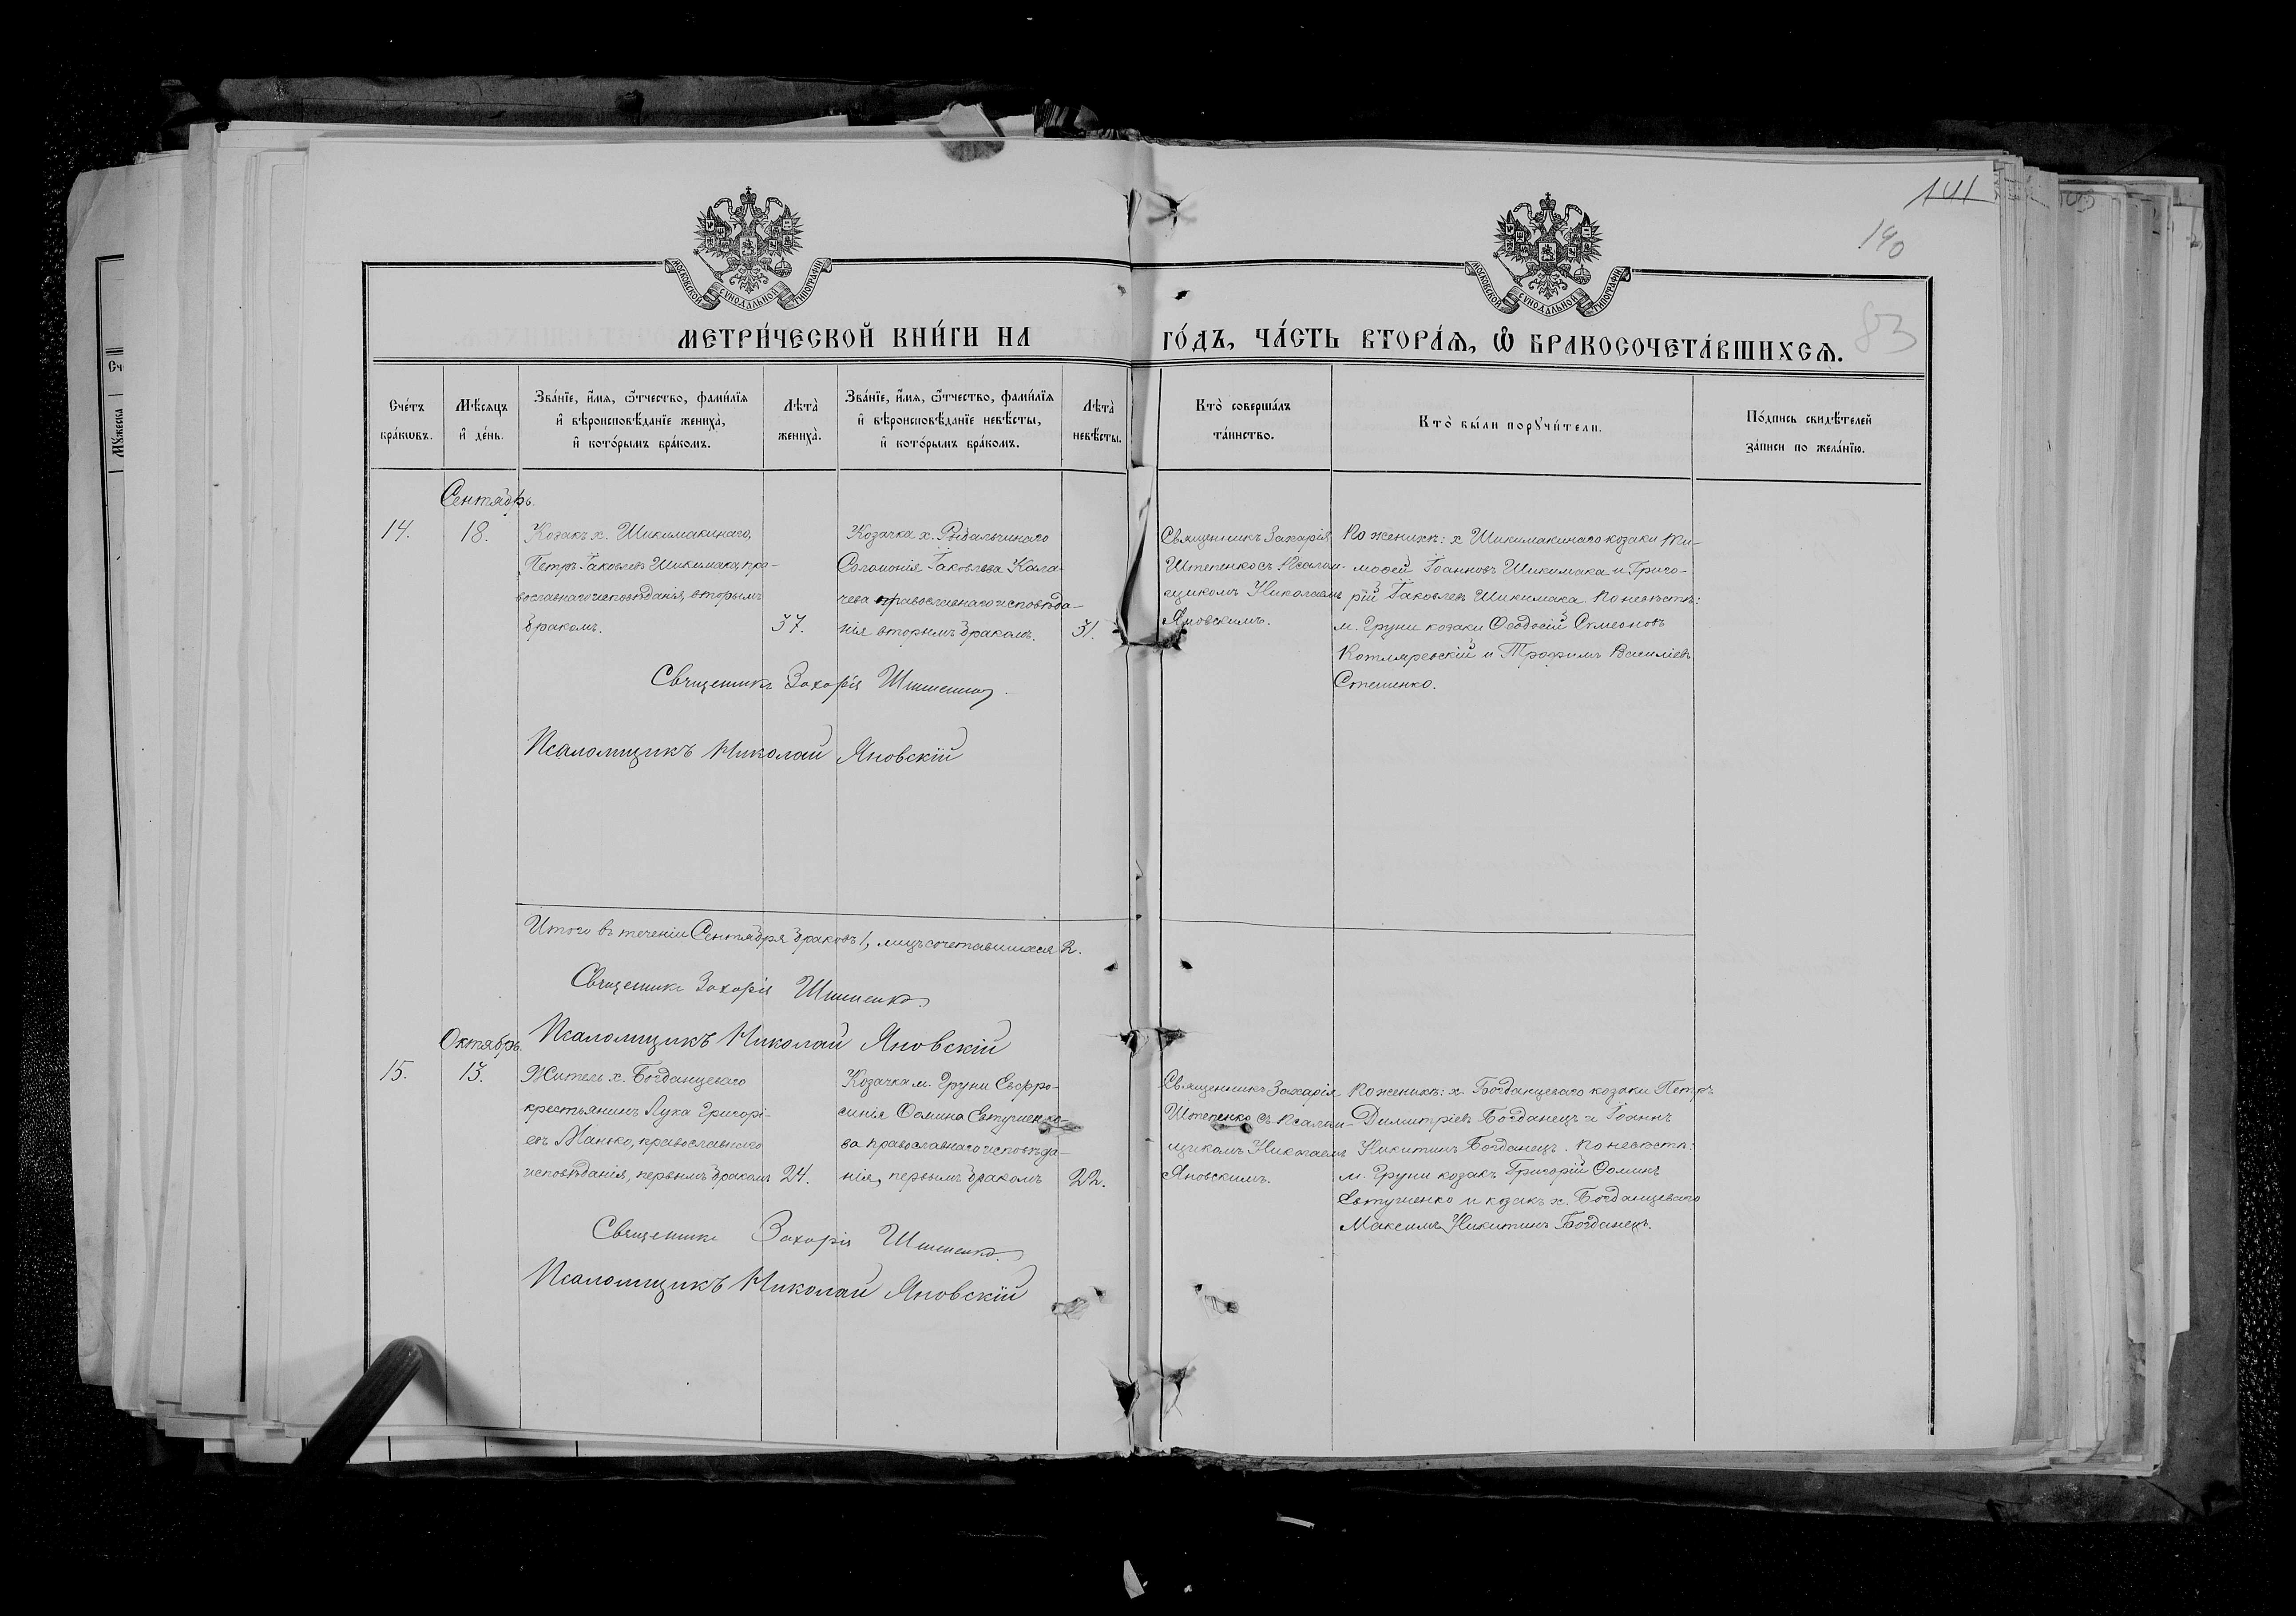 141
140
83
МОСКОВСКОЙ СѴНОДАЛЬНОЙ ТИПОГРАФІИ
МОСКОВСКОЙ СѴНОДАЛЬНОЙ ТИПОГРАФІИ
МЕТРИ́ЧЕСКОЙ КНИ́ГИ НА ГО́ДЪ, ЧА́СТЬ ВТОРА́Ѧ, Ѽ БРАКОСОЧЕТА́ВШИХСѦ.
Сче́тъ
бра́кѡвъ.
Мѣ́сѧцъ
и҆ де́нь.
Зва́нїе, и҆́мѧ, ѻ҆́тчество, фами́лїѧ
и҆ вѣроисповѣ́данїе жениха̀,
и҆ кото́рымъ бра́комъ.
Лѣта̀
жениха̀.
Зва́нїе, и҆́мѧ, ѻ҆́тчество, фами́лїѧ
и҆ вѣроисповѣ́данїе невѣ́сты,
и҆ кото́рымъ бра́комъ.
Лѣта̀
невѣ́сты.
Кто̀ соверша́лъ
та́инство.
Кто̀ бы́ли порꙋчи́тели.
По́дпись свидѣ́телей
за́писи по жела́нїю.
Сентябрь.
14.
18.
Козакъ х. Шикимакинаго,
Петръ Іаковлевъ Шикимака, пра-
вославнаго исповѣданія, вторымъ
бракомъ.
37.
Козачка х. Рыбальчинаго
Соломонія Іаковлева Кала-
чева православнаго исповѣда-
нія вторымъ бракомъ.
31.
Священникъ Захарія
Штепенко съ Псалом-
щикомъ Николаемъ
Яновскимъ.
По женихѣ: х Шикимакинаго козаки Ти-
мофей Іоанновъ Шикимака и Григо-
рій Іаковлевъ Шикимака. По невѣстѣ:
м. Груни козаки Ѳеодосій Симеоновъ
Котляревскій и Трофимъ Василіевъ
Стешенко.
Священникъ Захарія Штепенко
Псаломщикъ Николай Яновскій
Итого въ теченіи Сентября браковъ 1, лицъ сочетавшихся 2.
Священникъ Захарія Штепенко
Псаломщикъ Николай Яновскій
Октябрь.
15.
13.
Житель х. Богданцеваго
крестьянинъ Лука Григорі-
евъ Манько, православнаго
исповѣданія, первымъ бракомъ
24.
Козачка м. Груни Евфро-
синія Ѳомина Евтушенко-
ва православнаго исповѣда-
нія, первымъ бракомъ
22.
Священникъ Захарія
Штепенко съ Псалом-
щикомъ Николаемъ
Яновскимъ.
По женихѣ: х. Богданцеваго козаки Петръ
Димитріевъ Богданецъ и Іоаннъ
Никитинъ Богданецъ. По невѣстѣ:
м. Груни козакъ Григорій Ѳоминъ
Евтушенко и козакъ х. Богданцеваго
Максимъ Никитинъ Богданецъ.
Священникъ Захарія Штепенко
Псаломщикъ Николай Яновскій